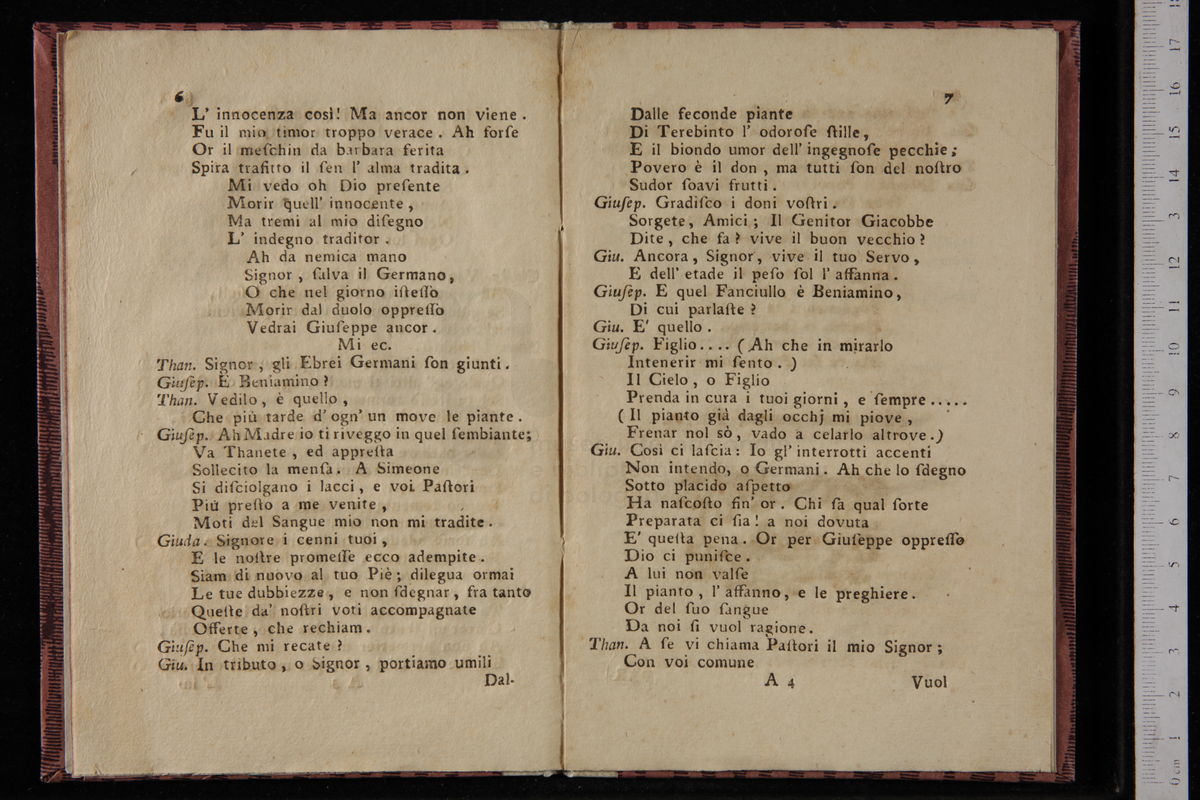 6
L' innocenza così! Ma ancor non viene.
Fu il mio timor troppo verace. Ah forſe
Or il meſchin da barbara ferita
Spira trafitto il ſen l' alma tradita.
Mi vedo oh Dio preſente
Morir quell' innocente,
Ma tremi al mio diſegno
L' indegno traditor.
Ah da nemica mano
Signor, ſalva il Germano,
O che nel giorno iſteſſo
Morir dal duolo oppreſſo
Vedrai Giuſeppe ancor.
Mi ec.
Than. Signor, gli Ebrei Germani ſon giunti.
Giuſep. E Beniamino?
Than. Vedilo, è quello,
Che più tarde d' ogn' un move le piante.
Giuſep. Ah Madre io ti riveggo in quel ſembiante;
Va Thanete, ed appreſta
Sollecito la menſa. A Simeone
Si diſciolgano i lacci, e voi Paſtori
Più preſto a me venite,
Moti del Sangue mio non mi tradite.
Giuda. Signore i cenni tuoi,
E le noſtre promeſſe ecco adempite.
Siam di nuovo al tuo Piè; dilegua ormai
Le tue dubbiezze, e non ſdegnar, fra tanto
Queſte da' noſtri voti accompagnate
Offerte, che rechiam.
Giuſep. Che mi recate?
Giu. In tributo, o Signor, portiamo umili
Dal-
7
Dalle feconde piante
Di Terebinto l' odoroſe ſtille,
E il biondo umor dell' ingegnoſe pecchie;
Povero è il don, ma tutti ſon del noſtro
Sudor ſoavi frutti.
Giuſep. Gradiſco i doni voſtri.
Sorgete, Amici; Il Genitor Giacobbe
Dite, che fa? vive il buon vecchio?
Giu. Ancora, Signor, vive il tuo Servo,
E dell' etade il peſo ſol l' affanna.
Giuſep. E quel Fanciullo è Beniamino,
Di cui parlaſte?
Giu. E' quello.
Giuſep. Figlio.... (Ah che in mirarlo
Intenerir mi ſento.)
Il Cielo, o Figlio
Prenda in cura i tuoi giorni, e ſempre.....
(Il pianto già dagli occhj mi piove,
Frenar nol sò, vado a celarlo altrove.)
Giu. Così ci laſcia: Io gl' interrotti accenti
Non intendo, o Germani. Ah che lo ſdegno
Sotto placido aſpetto
Ha naſcoſto fin' or. Chi ſa qual ſorte
Preparata ci ſia! a noi dovuta
E' queſta pena. Or per Giuſeppe oppreſſo
Dio ci puniſce.
A lui non valſe
Il pianto, l' affanno, e le preghiere.
Or del ſuo ſangue
Da noi ſi vuol ragione.
Than. A ſe vi chiama Paſtori il mio Signor;
Con voi comune
A 4
Vuol
0 cm 1 2 3 4 5 6 7 8 9 10 11 12 13 14 15 16 17